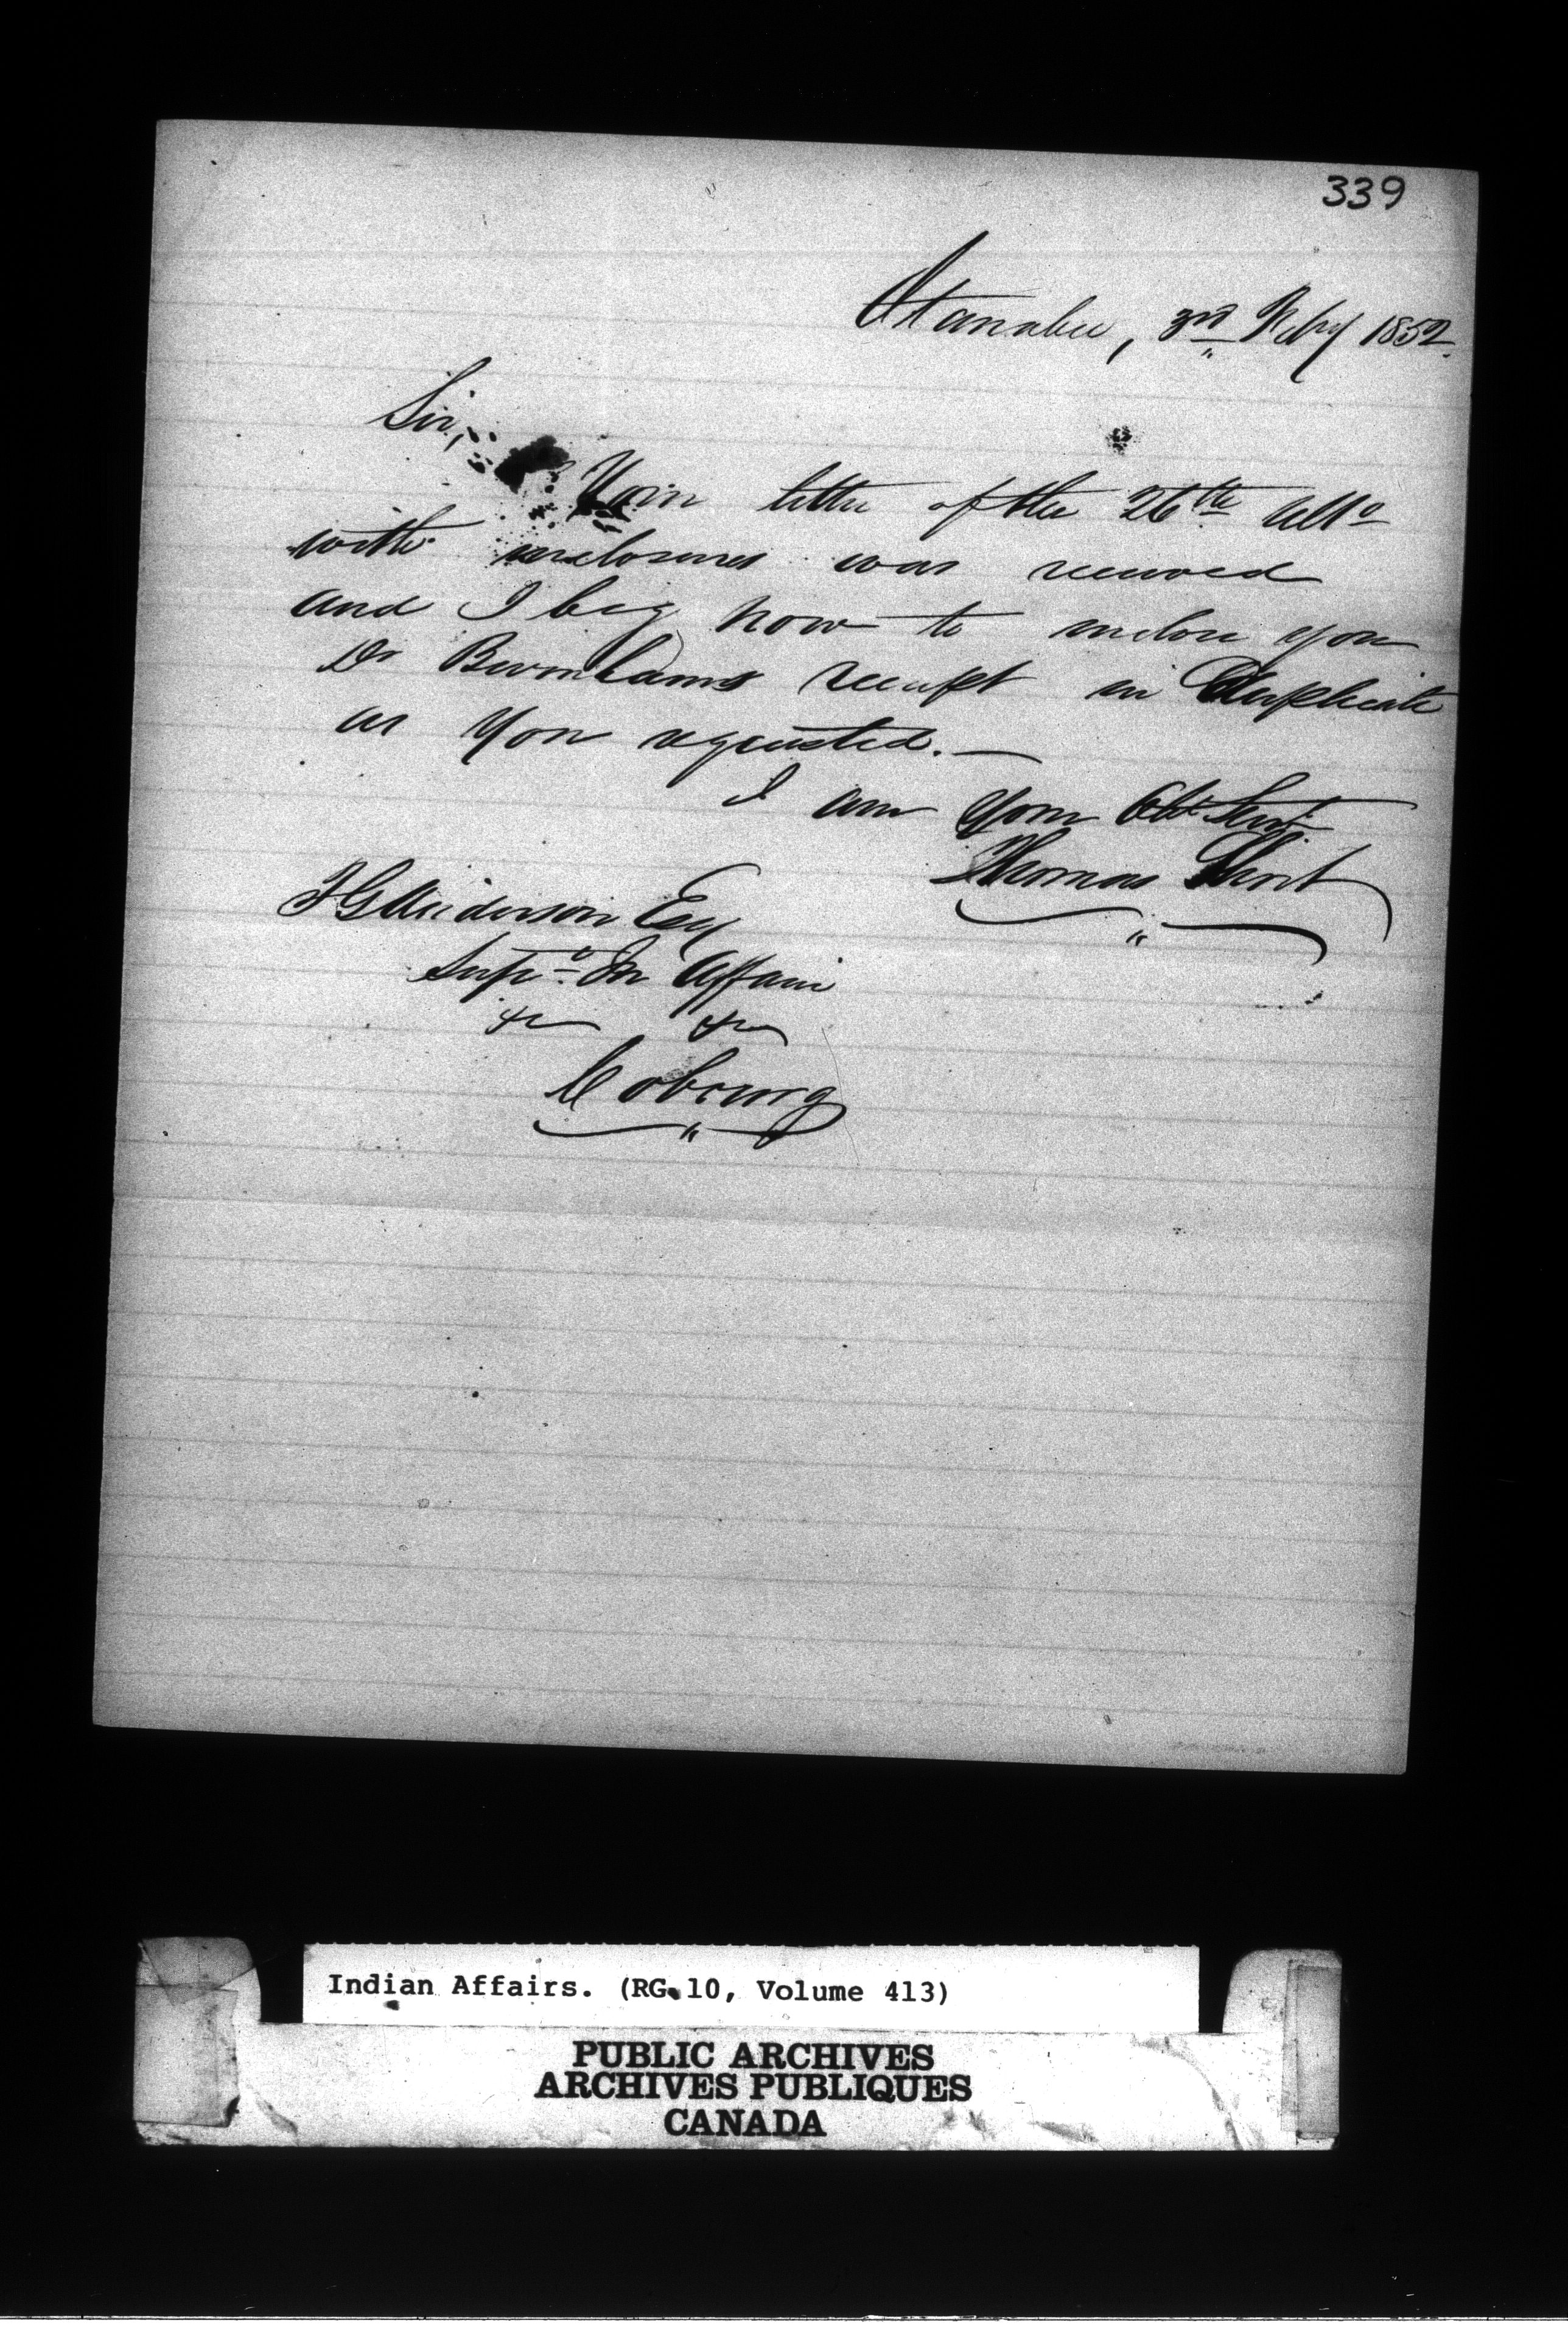 339
Otanabee, 3rd Feby 1852.
Sir,
Your letter of the 26th Ulto
with enclosures was received
and I beg now to enclose you
Dr Burnhams receipt in Duplicate
as you requested. —
I am your Obt Servt
Thomas Short
T G Anderson Esq
Supt. In Affairs
&c &c
Cobourg
Indian Affairs. (RG 10, Volume 413)
PUBLIC ARCHIVES
ARCHIVES PUBLIQUES
CANADA